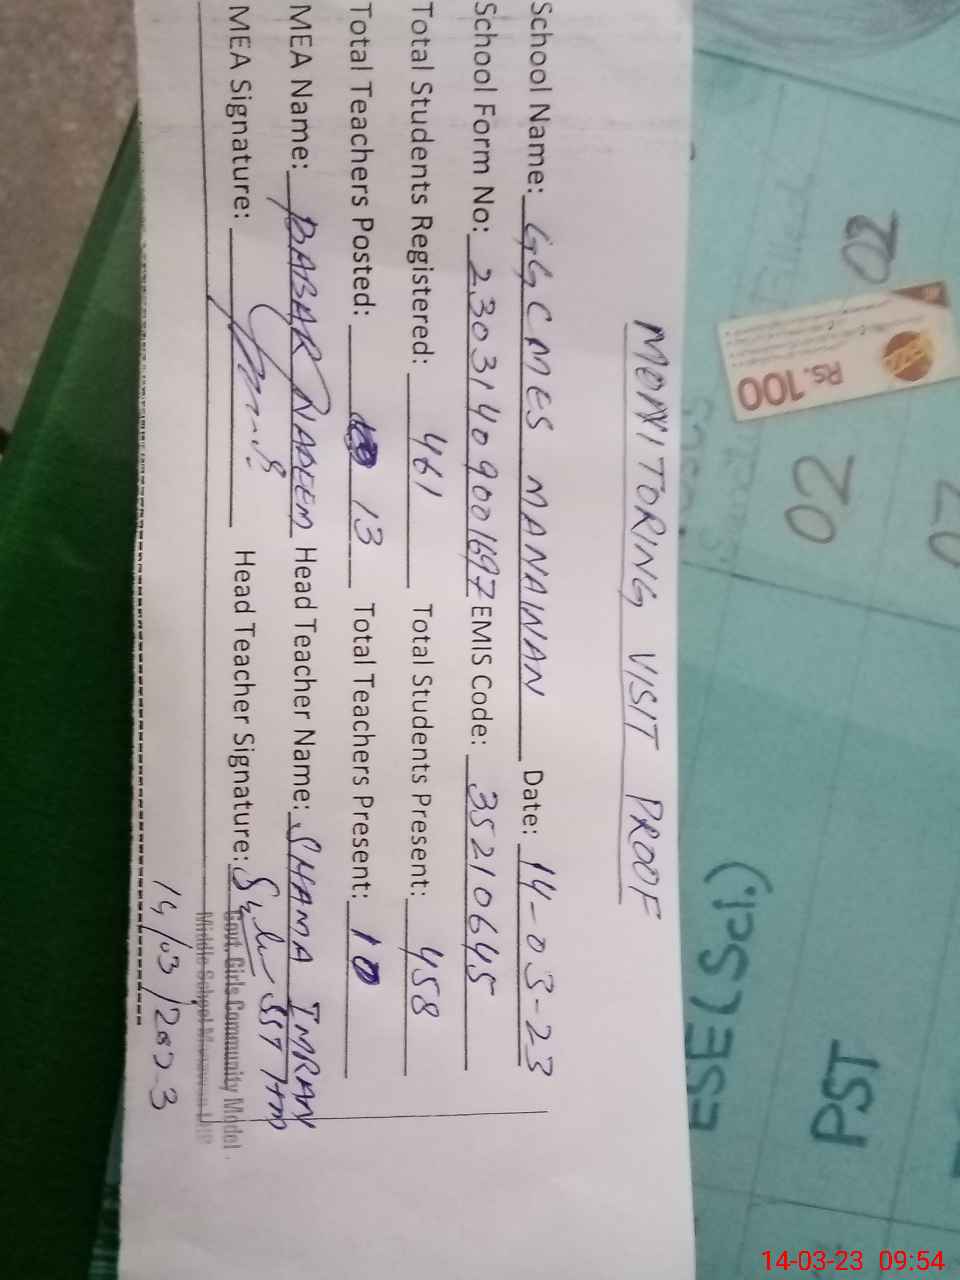 MONITORING VISIT PROOF
School Name: GGCMES MANAWAN Date: 14-03-23
School Form No: 23031409001697 EMIS Code: 35210645
Total Students Registered: 461 Total Students Present: 458
Total Teachers Posted: 13 Total Teachers Present: 10
MEA Name: BABAR NADEEM Head Teacher Name: SHAMA IMRAN
MEA Signature: Head Teacher Signature: SST HM
Govt. Girls Community Model
Middle School
14/03/2023
Rs.100
02
ESE(Sci.)
PST
14-03-23 09:54